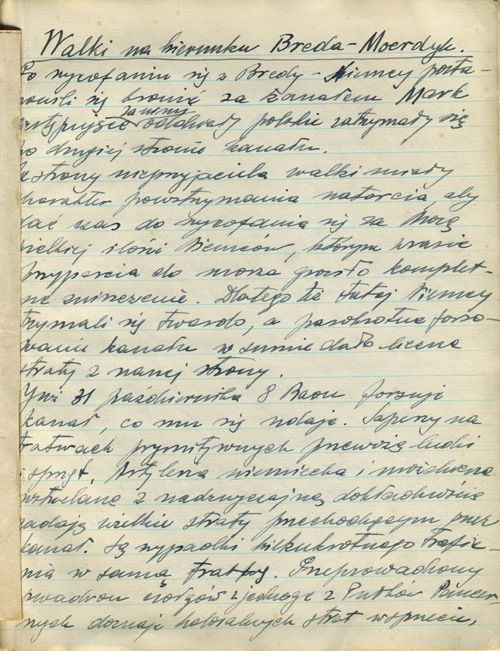 Walki na kierunku Breda-Moerdyk.
Po wycofaniu się z Bredy - Niemcy posta-
nowili się bronić za kanałem Mark
za nimi
oddziały polskie zatrzymały się
po drugiej stronie kanału.
Ze strony nieprzyjaciela walki miały
charakter powstrzymania natarcia, aby
dać czas do wycofania się za Mozę
wielkiej ilości Niemców, którym w razie
przyparcia do morza groziło komplet-
ne zniszczenie. Dlatego też tutaj Niemcy
trzymali się twardo, a parokrotne forso-
wanie kanału w sumie dało liczne
straty z naszej strony.
Już 31 października 8 Baon forsuje
kanał, co mu się udaje. Saperzy na
tratwach prymitywnych przewożą ludzi
i sprzęt. Artyleria niemiecka i moździerze
wstrzelane z nadzwyczajną dokładnością
zadają wielkie straty przechodzącym przez
kanał. Są wypadki kilkukrotnego trafie-
nia w same tratwy. Przeprowadzony
szwadron czołgów z jednego z Pułków Pancer-
nych doznaje kolosalnych strat w sprzęcie,